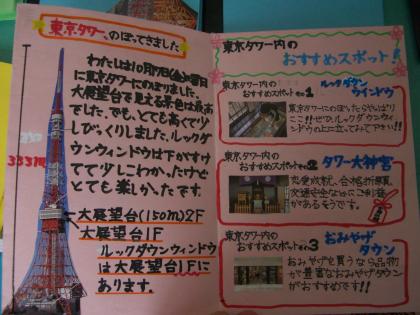 東京タワー、のぼってきました
わたしは10月17日(金)曜日
に東京タワーにのぼりました。
大展望台で見える景色は最高
でした。でも、とても高くて少
しびっくりしました。ルックダ
ウンウィンドウは下がすけて
てて少しこわかったけど
とても楽しかったです。
333m
大展望台(150m)2F
大展望台1F
ルックダウンウィンドウ
は大展望台1Fに
あります。
東京タワー内の
おすすめスポット!
東京タワー内の
おすすめスポットその1
ルックダウン
ウィンドウ
東京タワーにのぼったらやっぱり
ここ!!ぜひルックダウンウィン
ドウの上に立ってみて下さい!!
東京タワー内の
おすすめスポットその2
タワー大神宮
恋愛成就、合格祈願、
交通安全などにご利益
があるそうです。
東京タワー内の
おすすめスポットその3
おみやげ
タウン
おみやげを買うなら品物
が豊富なおみやげタウン
がおすすめです!!